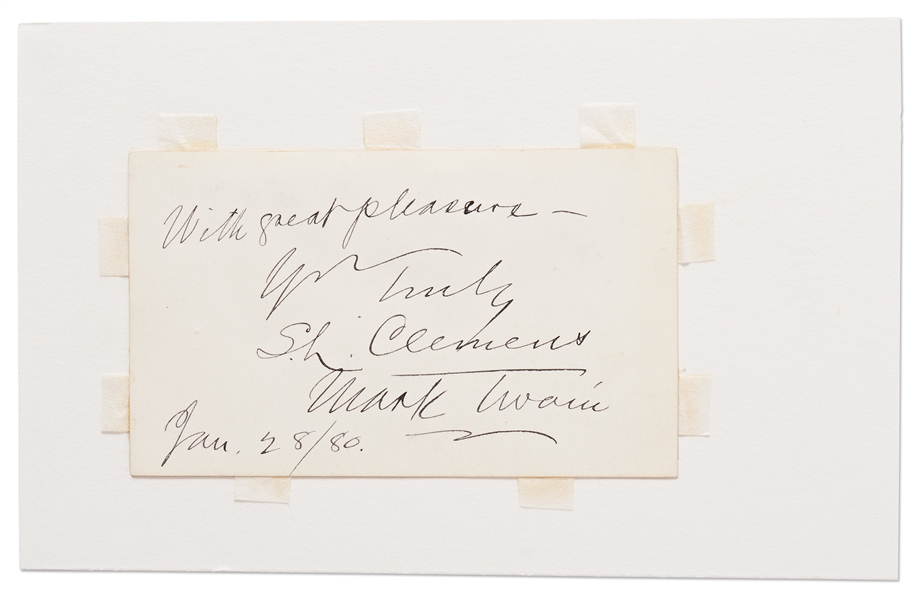 With great pleasure —
Yrs Truly
S. L. Clemens
Mark Twain
Jan. 28/80.